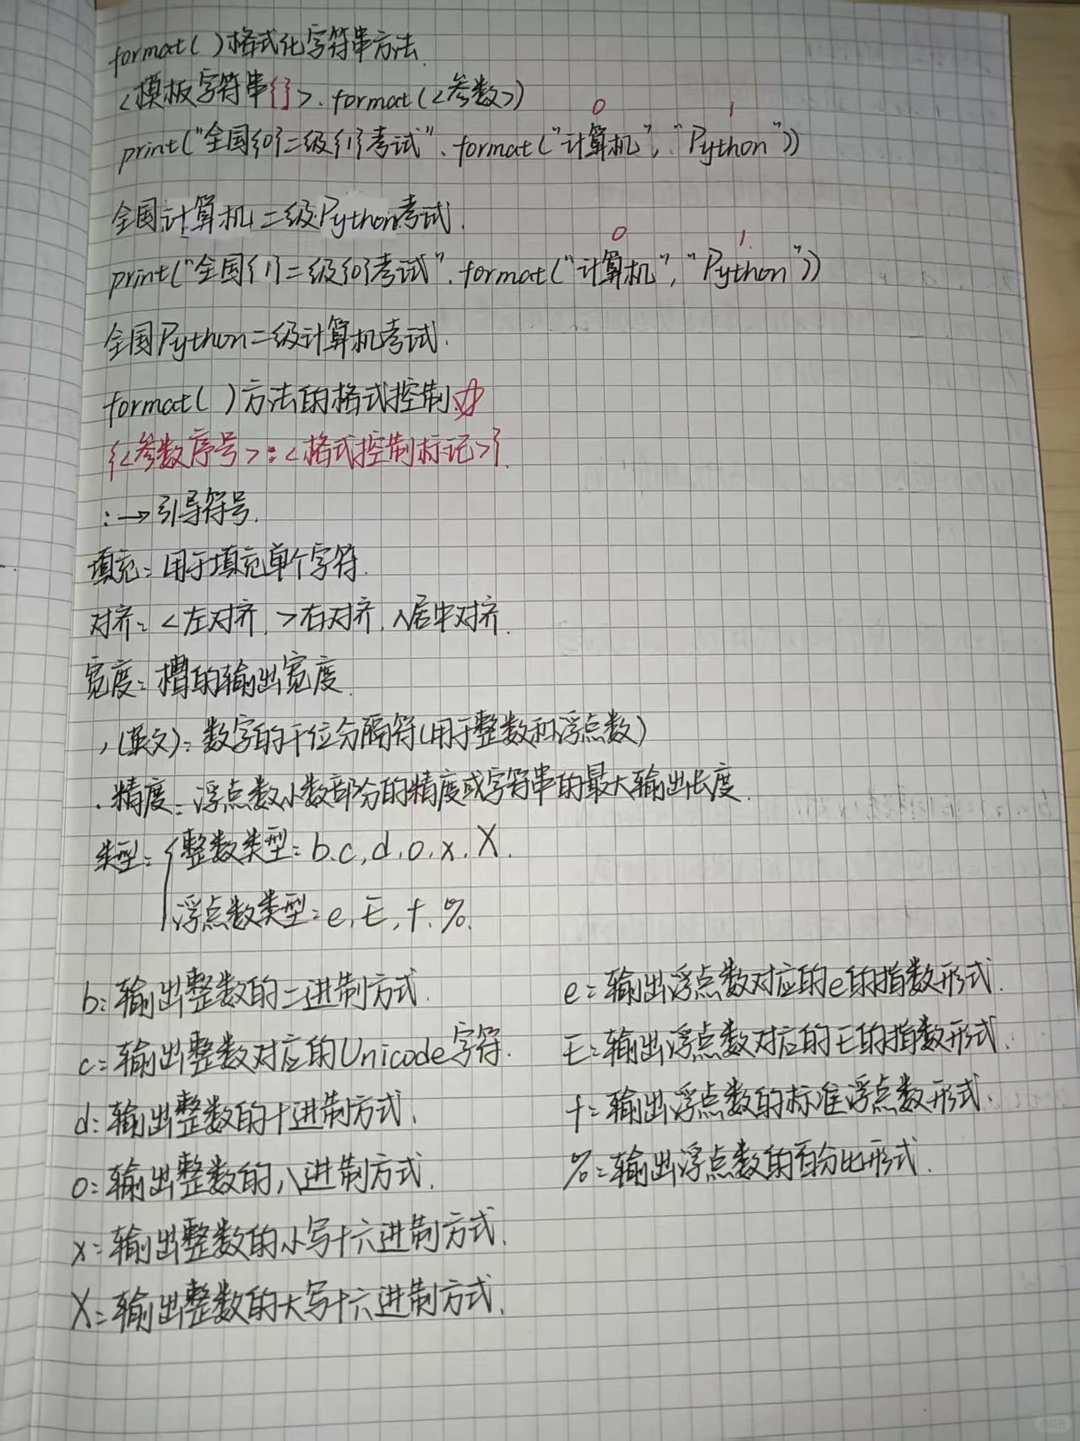 format( )格式化字符串方法.
<模板字符串{}>.format(<参数>)
0 1
print("全国{0}二级{1}考试".format("计算机","Python"))
全国计算机二级Python考试.
0 1
print("全国{1}二级{0}考试".format("计算机","Python"))
全国Python二级计算机考试.
format( )方法的格式控制
{<参数序号>:<格式控制标记>}.
:→引导符号.
填充:用于填充单个字符.
对齐:<左对齐,>右对齐,^居中对齐.
宽度:槽的输出宽度.
,(英文):数字的千位分隔符(用于整数和浮点数)
.精度:浮点数小数部分的精度或字符串的最大输出长度.
类型:{整数类型:b.c,d,o,x,X.
浮点数类型:e,E,f,%.
b:输出整数的二进制方式.
c:输出整数对应的Unicode字符.
d:输出整数的十进制方式.
o:输出整数的八进制方式.
x:输出整数的小写十六进制方式.
X:输出整数的大写十六进制方式.
e:输出浮点数对应的e的指数形式.
E:输出浮点数对应的E的指数形式.
f:输出浮点数的标准浮点数形式.
%:输出浮点数的百分比形式.